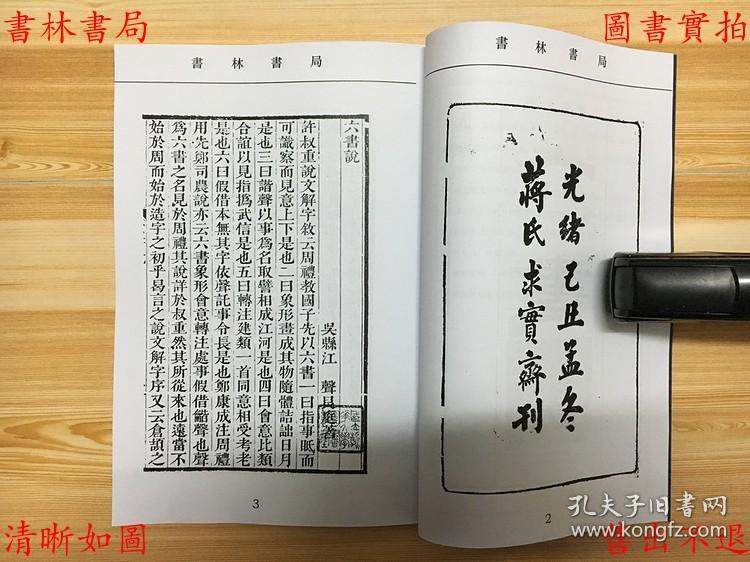 書林書局
圖書實拍
書林書局
書林書局
光緒己丑孟冬
蔣氏求實齋刊
2
六書說
吳縣江聲艮庭著
許叔重說文解字敘云周禮教國子先以六書一曰指事眡而
可識察而見意上下是也二曰象形畫成其物隨體詰詘日月
是也三曰諧聲以事爲名取譬相成江河是也四曰會意比類
合誼以見指撝武信是也五曰轉注建類一首同意相受考老
是也六曰假借本無其字依聲託事令長是也鄭康成注周禮
用先鄭司農說亦云六書象形會意轉注處事假借諧聲也聲
爲六書之名見於周禮其說詳於叔重然其所從來也遠當不
始於周而始於造字之初乎曷言之說文解字序又云倉頡之
3
清晰如圖
售出不退
孔夫子旧书网
www.kongfz.com